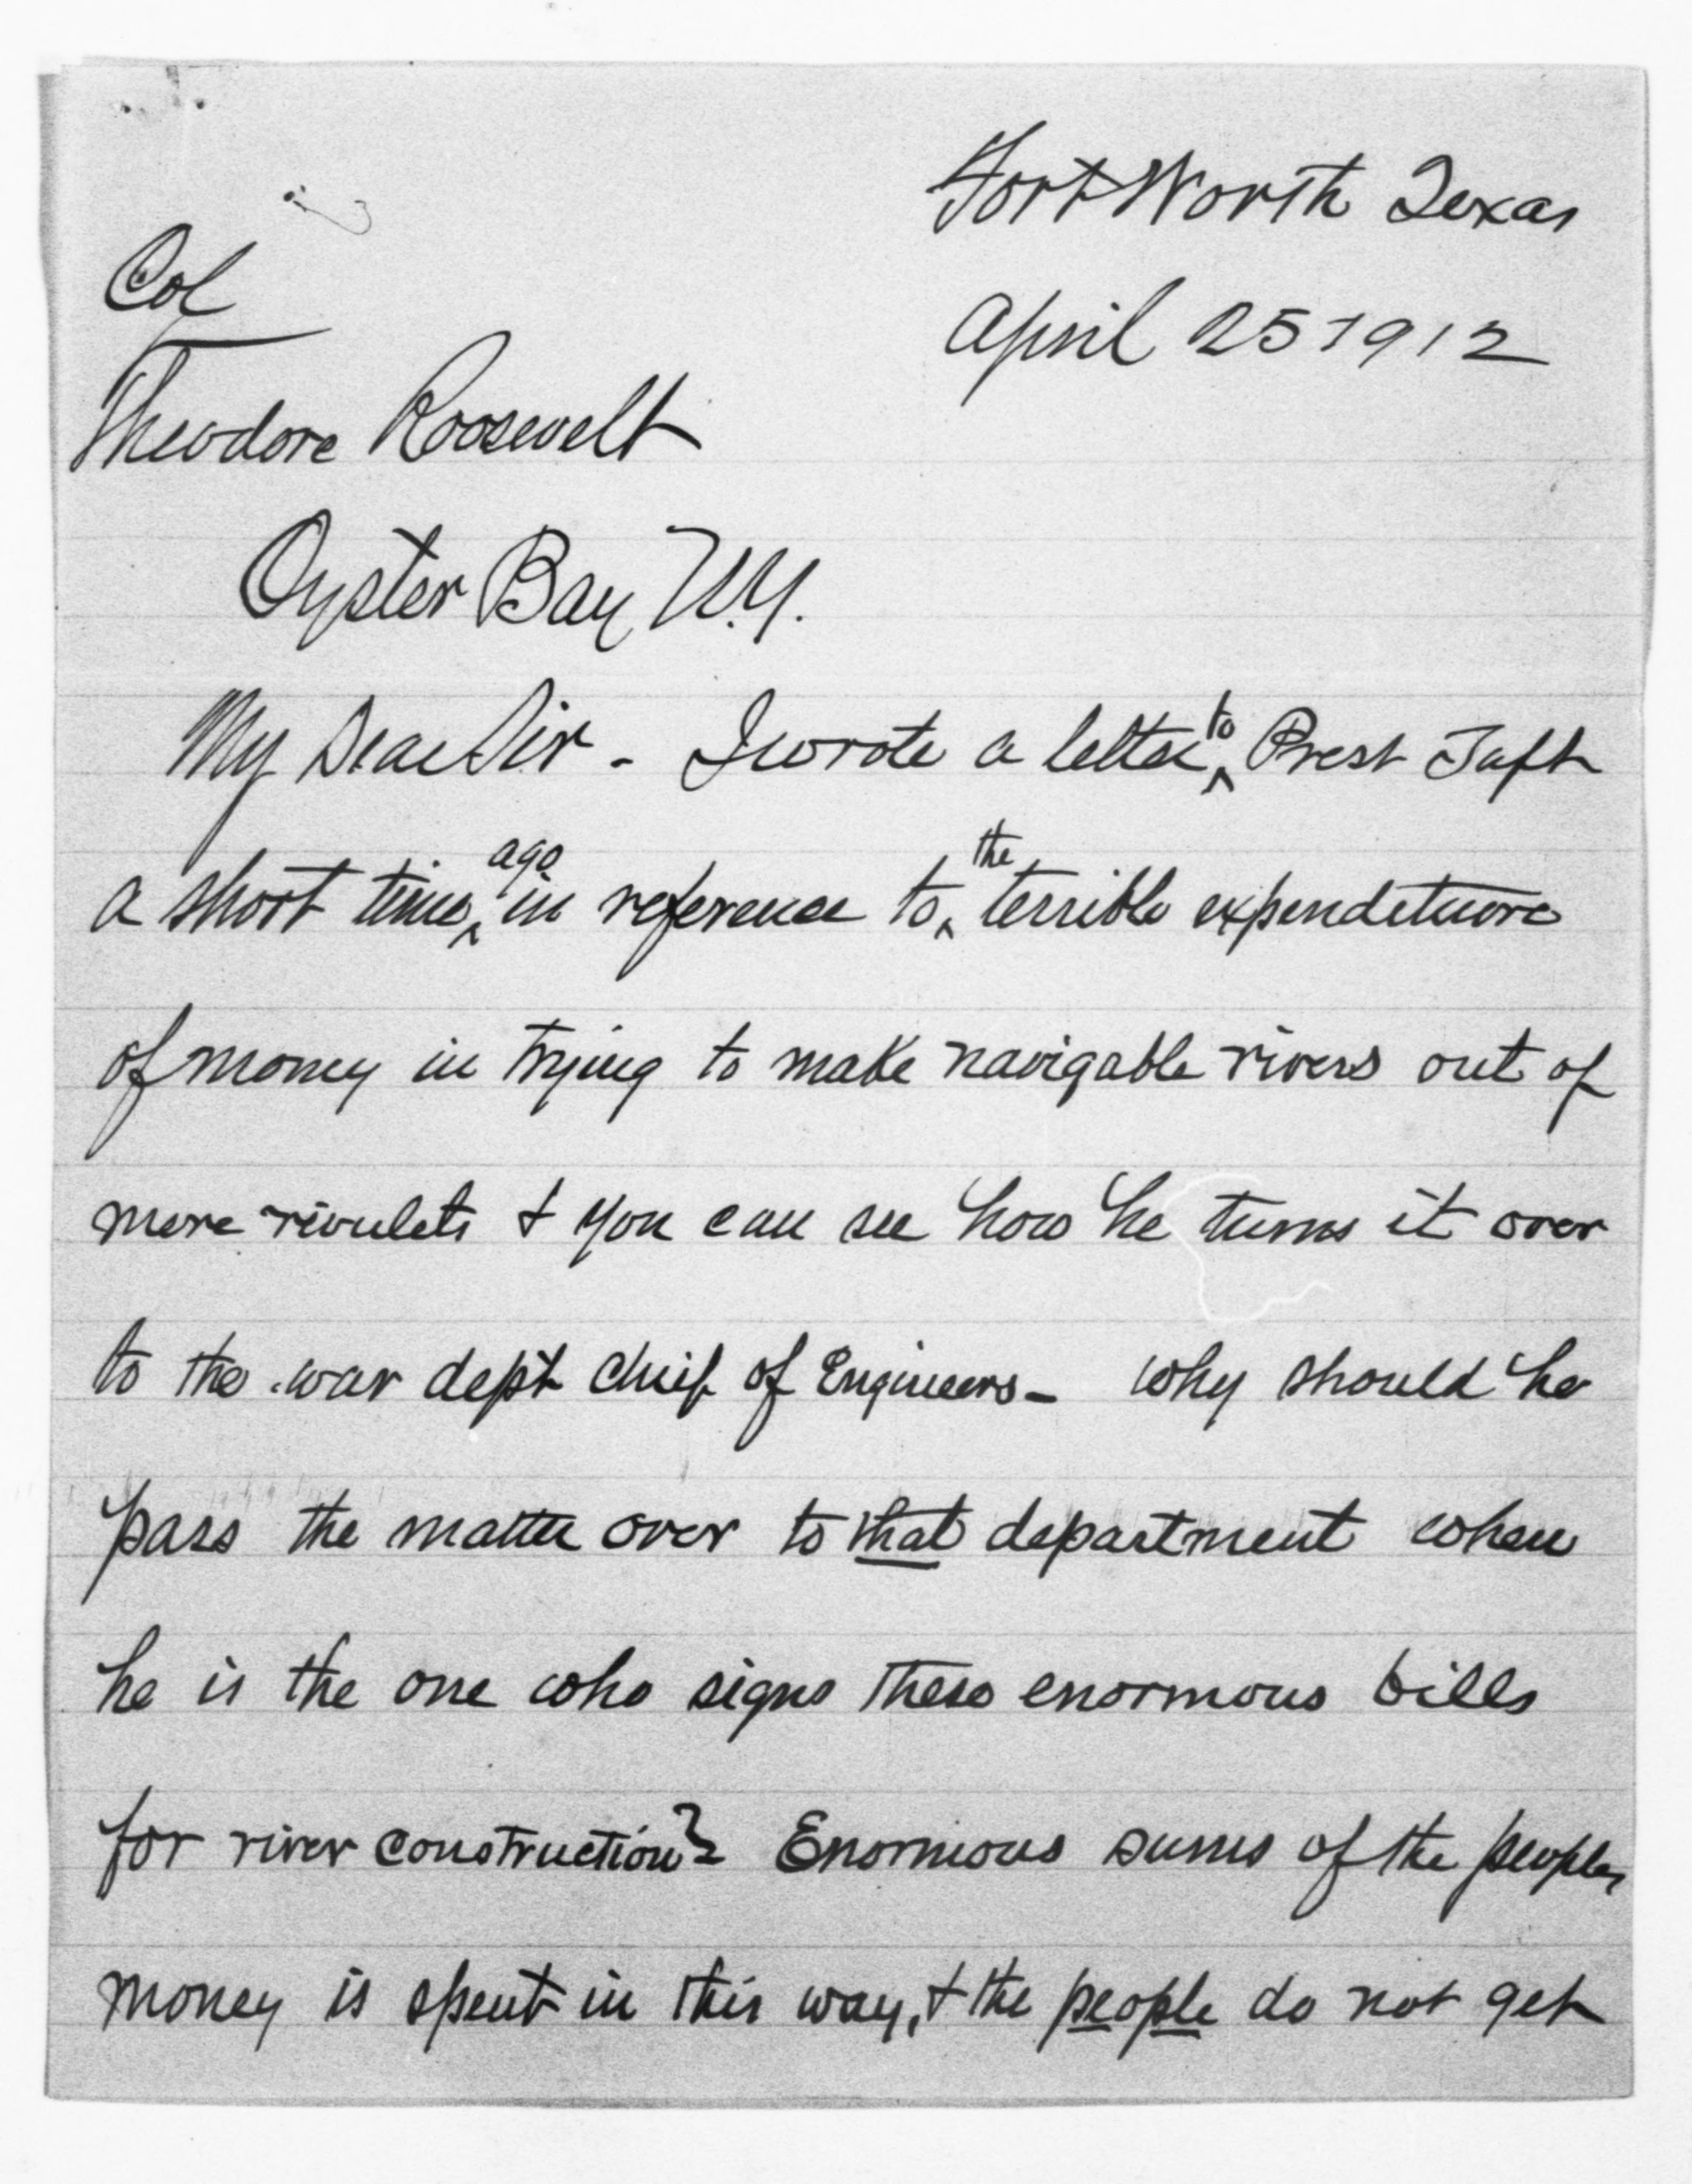 Fort Worth Texas
April 25 1912
Col
Theodore Roosevelt
Oyster Bay N.Y.
My Dear Sir - I wrote a letter to Prest Taft
a short time ago in reference to the terrible expenditure
of money in trying to make navigable rivers out of
mere rivulets & you can see how he turns it over
to the war dept chief of Engineers - why should he
pass the matter over to that department when
he is the one who signs these enormous bills
for river construction? Enormous sums of the peoples
money is spent in this way, & the people do not get